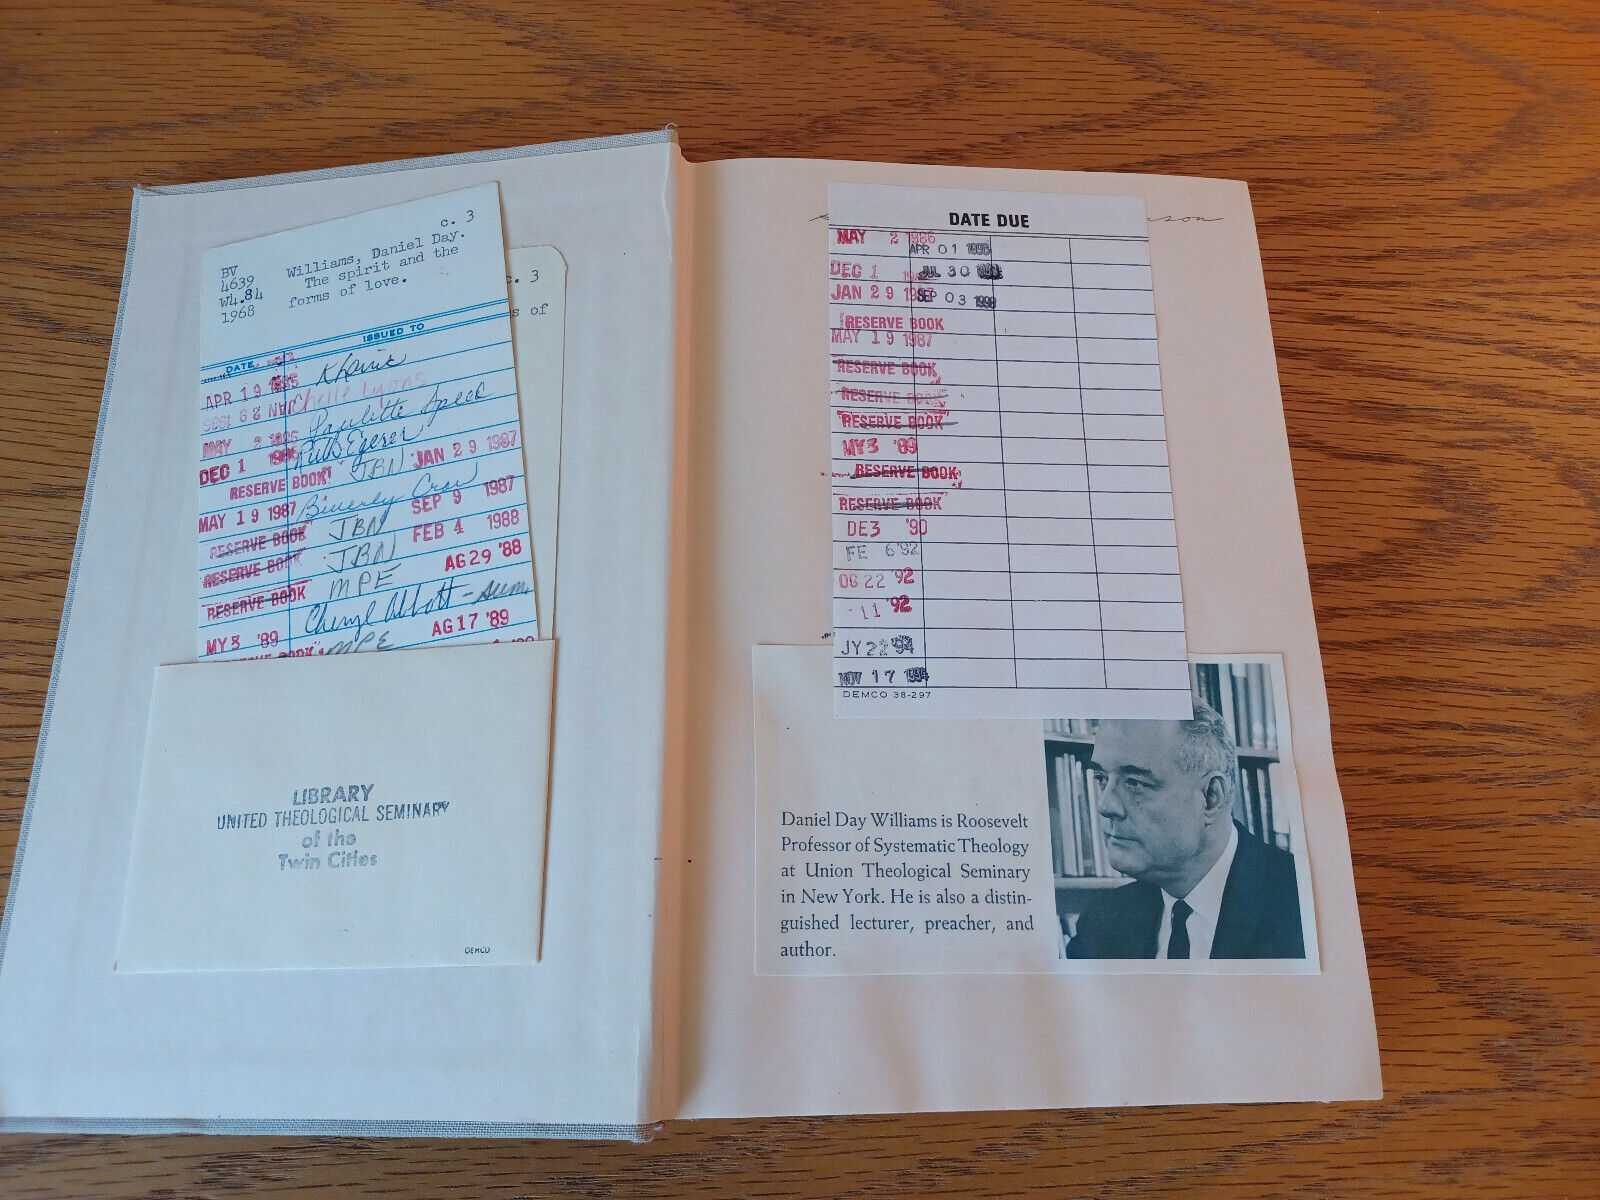 c. 3
BV
4639
W4.84
1968
Williams, Daniel Day.
The spirit and the
forms of love.
c. 3
s of
DATE
ISSUED TO
APR 19
Chelle Lyons
JAN 29 1986
Paulette Speed
MAY 2 1986
DEC 1
RESERVE BOOK
JBN JAN 29 1987
MAY 19 1987
RESERVE BOOK JBN SEP 9 1987
RESERVE BOOK JBN FEB 4 1988
RESERVE BOOK MPE AG 29 '88
MY 3 '89 Cheryl Abbott-
RESERVE BOOK MPE AG 17 '89
LIBRARY
UNITED THEOLOGICAL SEMINARY
of the
Twin Cities
DEMCO
son
DATE DUE
MAY 2 1986
APR 01
DEC 1
JUL 30
JAN 29 1987
SEP 03
RESERVE BOOK
MAY 19 1987
RESERVE BOOK
RESERVE BOOK
RESERVE BOOK
MY 3 '89
RESERVE BOOK
RESERVE BOOK
DE 3 '90
FE 6 '92
22 '92
11 '92
JY 22 '94
NOV 17 1994
DEMCO 38-297
Daniel Day Williams is Roosevelt
Professor of Systematic Theology
at Union Theological Seminary
in New York. He is also a distin-
guished lecturer, preacher, and
author.